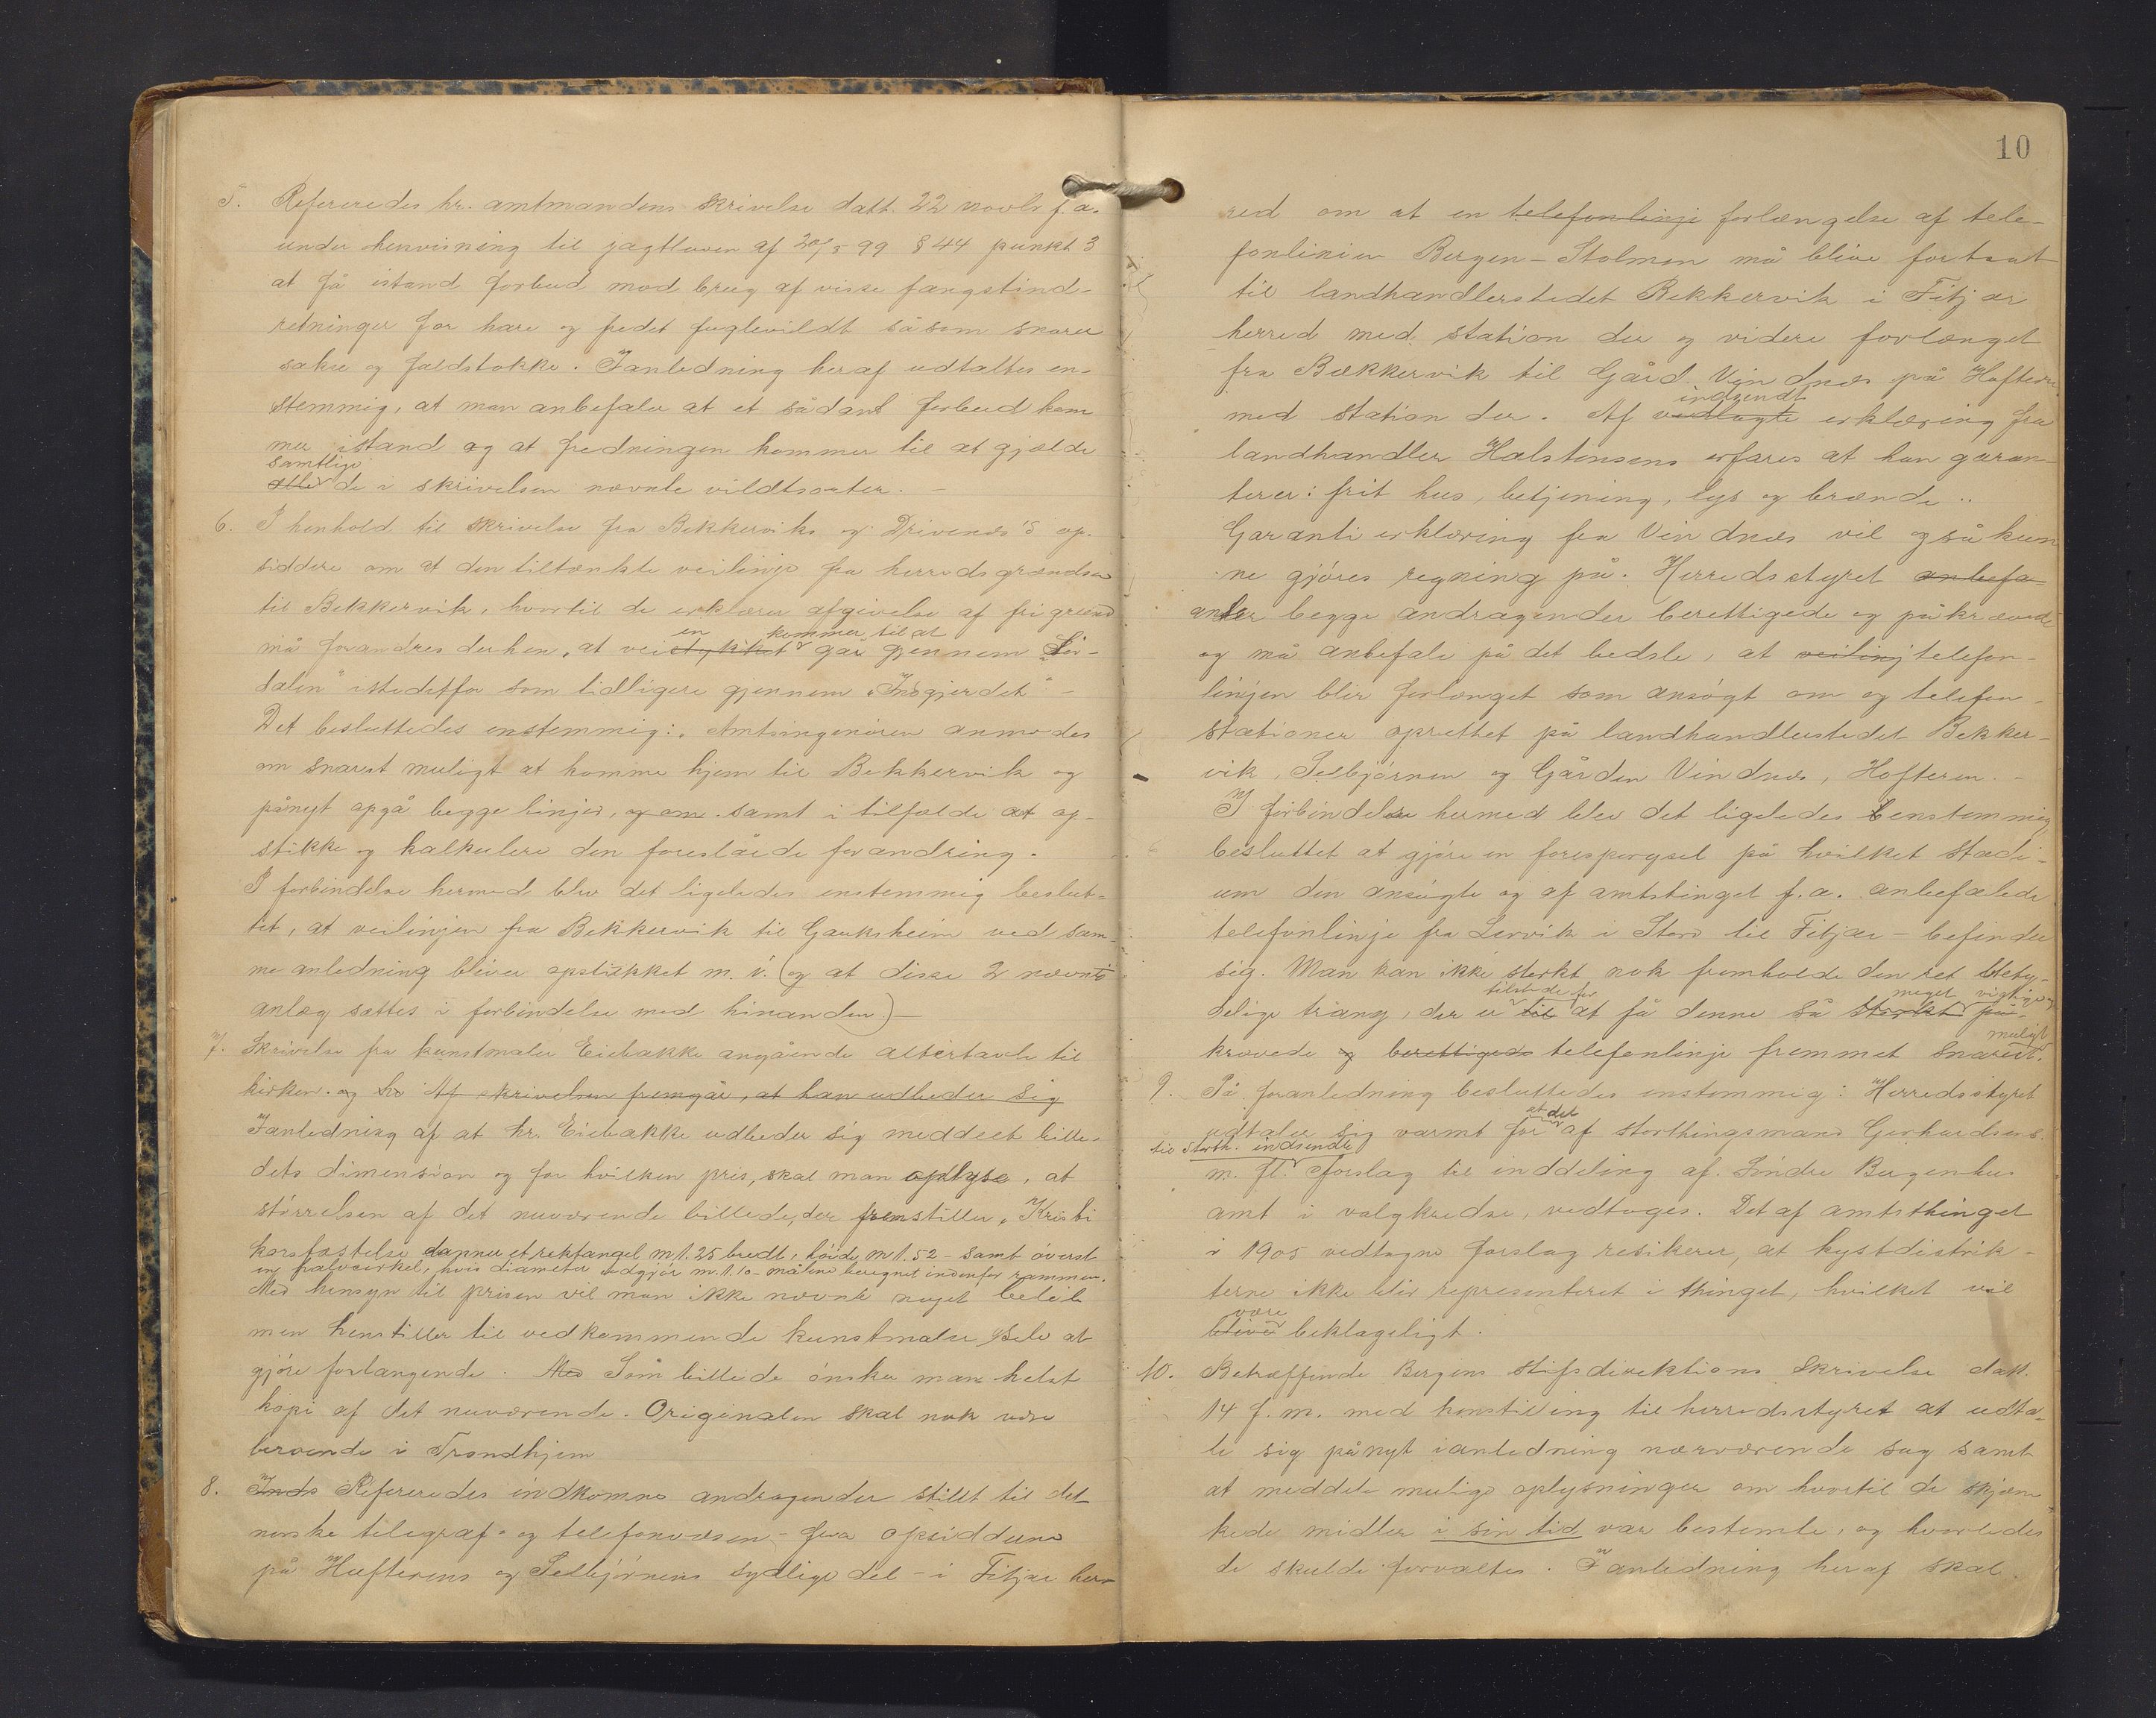 5. Refereredes hr. amtmandens skrivelse datt. 22 novb. f.a.
under henvisning til jagtloven af 20/5 99 § 44 punkt 3
at få istand forbud mod brug af visse fangstind-
retninger for hare og fredet fuglevildt såsom snarer
sakse og faldstokke. I anledning heraf udtaltes en-
stemmig, at man anbefaler at et sådant forbud kom
mer istand og at fredningen kommer til at gjælde
samtlige
alle de i skrivelsen nævnte vildtsorter. —
6. I henhold til skrivelse fra Bekkerviks og Drivenes's op-
siddere om at den tiltænkte veilinje fra herredsgrændsen
til Bekkervik, hvortil de erklærer afgivelse af fri grund
en kommer til at
må forandres derhen, at veistykket går gjennem "Lør-
dalen" istedetfor som tidligere gjennem "Indgjerdet" —
Det besluttedes enstemmig: Amtsingeniøren anmodes
om snarest muligt at komme hjem til Bekkervik og
pånyt opgå begge linjer, og om samt i tilfælde at op-
stikke og kalkulere den foreslåede forandring.
I forbindelse hermed blev det ligeledes enstemmig beslut-
tet, at veilinjen fra Bekkervik til Gauksheim ved sam-
me anledning bliver opstukket m. v. (og at disse 2 nævnte
anlæg sættes i forbindelse med hinanden.) —
7. Skrivelse fra kunstmaler Eiebakke angående altertavle til
kirken. og ha Af skrivelsen fremgår, at han udbeder sig
I anledning af at hr. Eiebakke udbeder sig meddelt bille-
dets dimension og for hvilken pris, skal man oplyse, at
størrelsen af det nuværende billede, der fremstiller "Kristi
korsfæstelse danner et rektangel m 1.25 bredt, høide m 1.52 – samt øverst
en halvcirkel, hvis diameter udgjør m. 1.10 – målene beregnet indenfor rammen.
Med hensyn til prisen vil man ikke nævne noget beløb
men henstiller til vedkommende kunstmaler selv at
gjøre forlangende. Med Som billede ønsker man helst
kopi af det nuværende. Originalen skal nok være
beroende i Trondhjem
8. Inds Refereredes indkomne andragender stillt til det
norske telegraf- og telefonvæsen – fra opsidderne
på Hufterens og Selbjørnens sydlige del – i Fitjar her-
10
red om at en telefonlinje forlængelse af tele-
fonlinien Bergen – Stolmen må blive fortsat
til landhandlerstedet Bekkervik i Fitjar
herred med station der og videre forlænget
fra Bækkervik til Gård Vindnes på Hufteren
indsendt
med station der. Af vedlagte erklæring fra
landhandler Halstensens erfares at han garan-
terer: frit hus, betjening, lys og brænde..
Garantierklæring fra Vindnes vil også kun
ne gjøres regning på. Herredsstyret anbefa
anser begge andragender berettigede og påkrævede
og må anbefale på det bedste, at veilinj telefon-
linjen blir forlænget som ansøgt om og telefon-
stationer oprettet på landhandlerstedet Bekker-
vik, Selbjørnen og Gården Vindnes, Hufteren. —
I forbindelse hermed blev det ligeledes enstemmig
besluttet at gjøre en forespørgsel på hvilket stadi-
um den ansøgte og af amtstinget f.a. anbefalede
telefonlinje fra Lervik i Stord til Fitjar – befinder
sig. Man kan ikke sterkt nok fremholde den ret bety-
tilstede for meget vigtige og
delige trang, der er til at få denne så sterkt på-
muligt
krævede og berettigede telefonlinje fremmet snarest.
9. På foranledning besluttedes enstemmig: Herredsstyret
at det
udtaler sig varmt for af storthingsmand Gerhardsens
til Storth. indsendte
m. fl. forslag til inddeling af Søndre Bergenhus
amt i valgkredse, vedtages. Det af amtsthinget
i 1905 vedtagne forslag resikerer, at kystdistrik-
terne ikke blir representeret i thinget, hvilket vil
være
blive beklageligt.
10. Betræffende Bergens stifsdirektions skrivelse datt.
14 f. m. med henstilling til herredsstyret at udta-
le sig pånyt i anledning nærværende sag samt
at meddele mulige oplysninger om hvortil de skjæn-
kede midler i sin tid var bestemte, og hvorledes
de skulde forvaltes. I anledning heraf skal